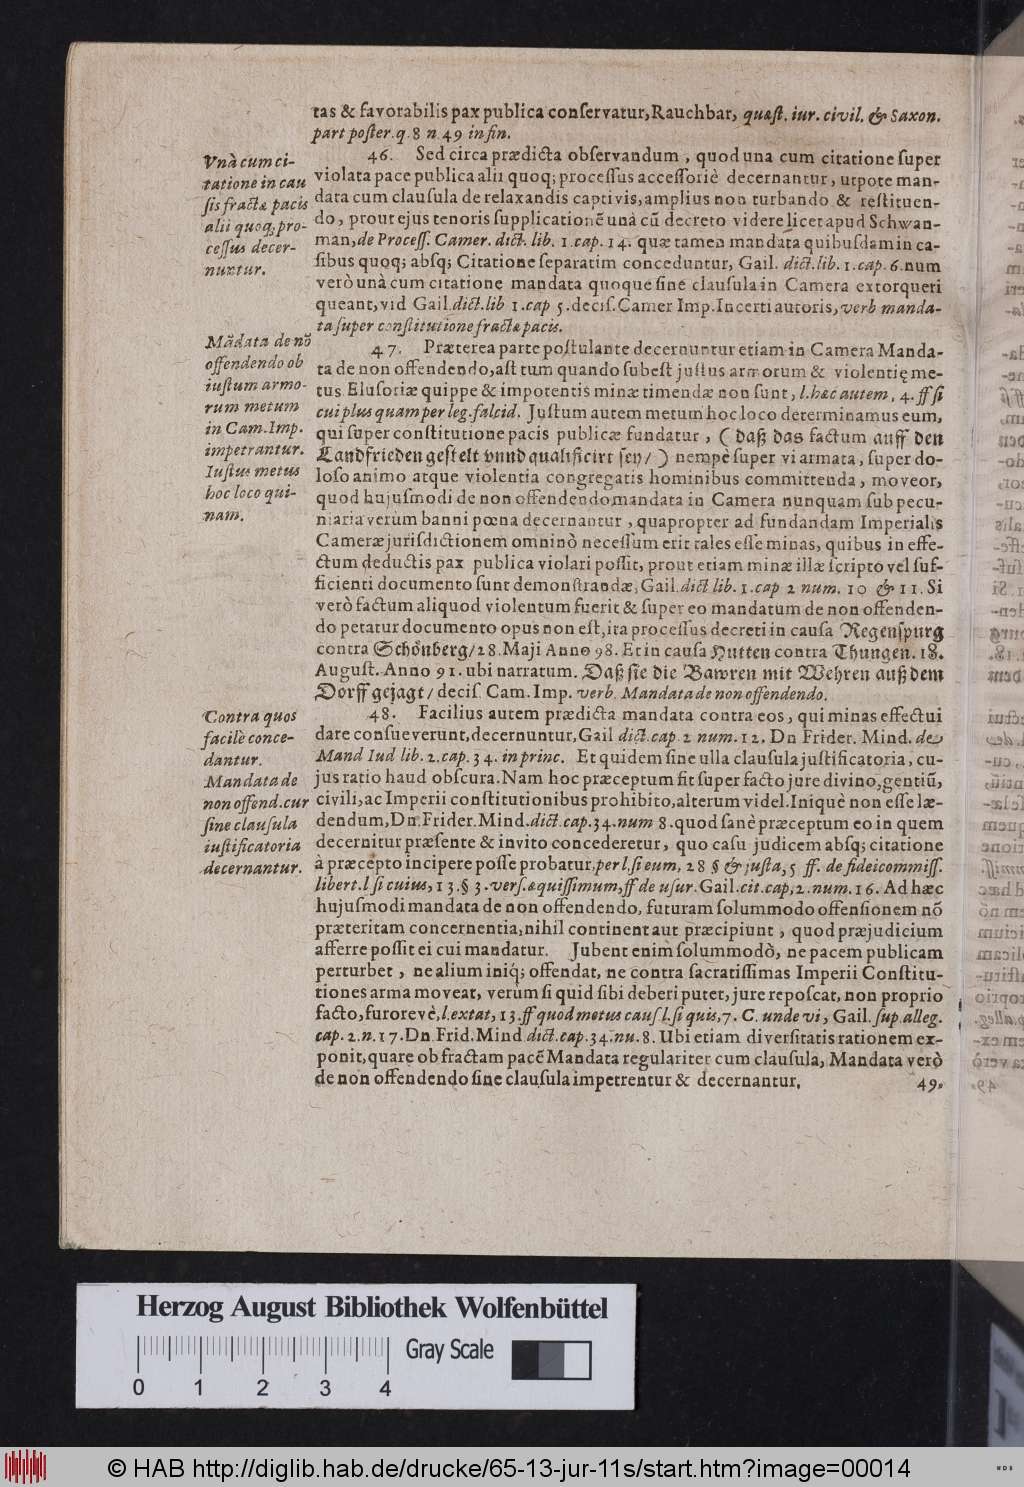 tas & favorabilis pax publica conservatur, Rauchbar, quæst. iur. civil. & Saxon.
part poster. q. 8 n. 49 in fin.
Vnà cum ci-
tatione in cau
sis fractæ pacis
alii quoq; pro-
cessus decer-
nuntur.
46. Sed circa prædicta observandum, quod una cum citatione super
violata pace publica alii quoq; processus accessoriè decernantur, utpote man-
data cum clausula de relaxandis captivis, amplius non turbando & restituen-
do, prout ejus tenoris supplicationē unà cū decreto videre licet apud Schwan-
man, de Process. Camer. dict. lib. 1. cap. 14. quæ tamen mandata quibusdam in ca-
sibus quoq; absq; Citatione separatim conceduntur, Gail. dict. lib. 1. cap. 6. num
verò unà cum citatione mandata quoque sine clausula in Camera extorqueri
queant, vid Gail. dict. lib 1. cap 5. decis. Camer Imp. Incerti autoris, verb manda-
ta super constitutione fractæ pacis.
Mādata de nō
offendendo ob
iustum armo-
rum metum
in Cam. Imp.
impetrantur.
Iustus metus
hoc loco qui-
nam.
47. Præterea parte postulante decernuntur etiam in Camera Manda-
ta de non offendendo, ast tum quando subest justus armorum & violentię me-
tus Elusoriæ quippe & impotentis minæ timendæ non sunt, l. hæc autem, 4. ff si
cui plus quam per leg. falcid. Justum autem metum hoc loco determinamus eum,
qui super constitutione pacis publicæ fundatur, (daß das factum auff den
Landfrieden gestelt vnnd qualificirt sey/) nempe super vi armata, super do-
loso animo atque violentia congregatis hominibus committenda, moveor,
quod hujusmodi de non offendendo mandata in Camera nunquam sub pecu-
niaria verùm banni pœna decernantur, quapropter ad fundandam Imperialis
Cameræ jurisdictionem omninò necessum erit tales esse minas, quibus in effe-
ctum deductis pax publica violari possit, prout etiam minæ illæ scripto vel suf-
ficienti documento sunt demonstrandæ, Gail. dict lib. 1. cap 2 num. 10 & 11. Si
verò factum aliquod violentum fuerit & super eo mandatum de non offenden-
do petatur documento opus non est, ita processus decreti in causa Regenspurg
contra Schönberg/ 28. Maji Anno 98. Et in causa Hutten contra Thungen. 18.
August. Anno 91. ubi narratum. Daß sie die Bawren mit Wehren auß dem
Dorff gejagt/ decis. Cam. Imp. verb. Mandata de non offendendo.
Contra quos
facilè conce-
dantur.
Mandata de
non offend. cur
sine clausula
iustificatoria
decernantur.
48. Facilius autem prædicta mandata contra eos, qui minas effectui
dare consueverunt, decernuntur, Gail dict. cap. 2 num. 12. Dn Frider. Mind. de
Mand Iud lib. 2. cap. 34. in princ. Et quidem sine ulla clausula justificatoria, cu-
jus ratio haud obscura. Nam hoc præceptum fit super facto jure divino, gentiū,
civili, ac Imperii constitutionibus prohibito, alterum videl. Iniquè non esse læ-
dendum, Dn. Frider. Mind. dict. cap. 34. num 8. quod sanè præceptum eo in quem
decernitur præsente & invito concederetur, quo casu judicem absq; citatione
à præcepto incipere posse probatur, per l. si eum, 28 § & justa, 5 ff. de fideicommiss.
libert. l si cuius, 13. § 3. vers. æquissimum, ff de usur. Gail. cit. cap, 2. num. 16. Ad hæc
hujusmodi mandata de non offendendo, futuram solummodo offensionem nō
præteritam concernentia, nihil continent aut præcipiunt, quod præjudicium
afferre possit ei cui mandatur. Jubent enim solummodò, ne pacem publicam
perturbet, ne alium iniq; offendat, ne contra sacratissimas Imperii Constitu-
tiones arma moveat, verùm si quid sibi deberi putet, jure reposcat, non proprio
facto, furorevè, l. extat, 13. ff quod metus caus l. si quis, 7. C. unde vi, Gail. sup. alleg.
cap. 2. n. 17. Dn Frid. Mind dict. cap. 34. nu. 8. Ubi etiam diversitatis rationem ex-
ponit, quare ob fractam pacē Mandata regulariter cum clausula, Mandata verò
de non offendendo sine clausula impetrentur & decernantur.
49.
Herzog August Bibliothek Wolfenbüttel
Gray Scale
0 1 2 3 4
© HAB http://diglib.hab.de/drucke/65-13-jur-11s/start.htm?image=00014